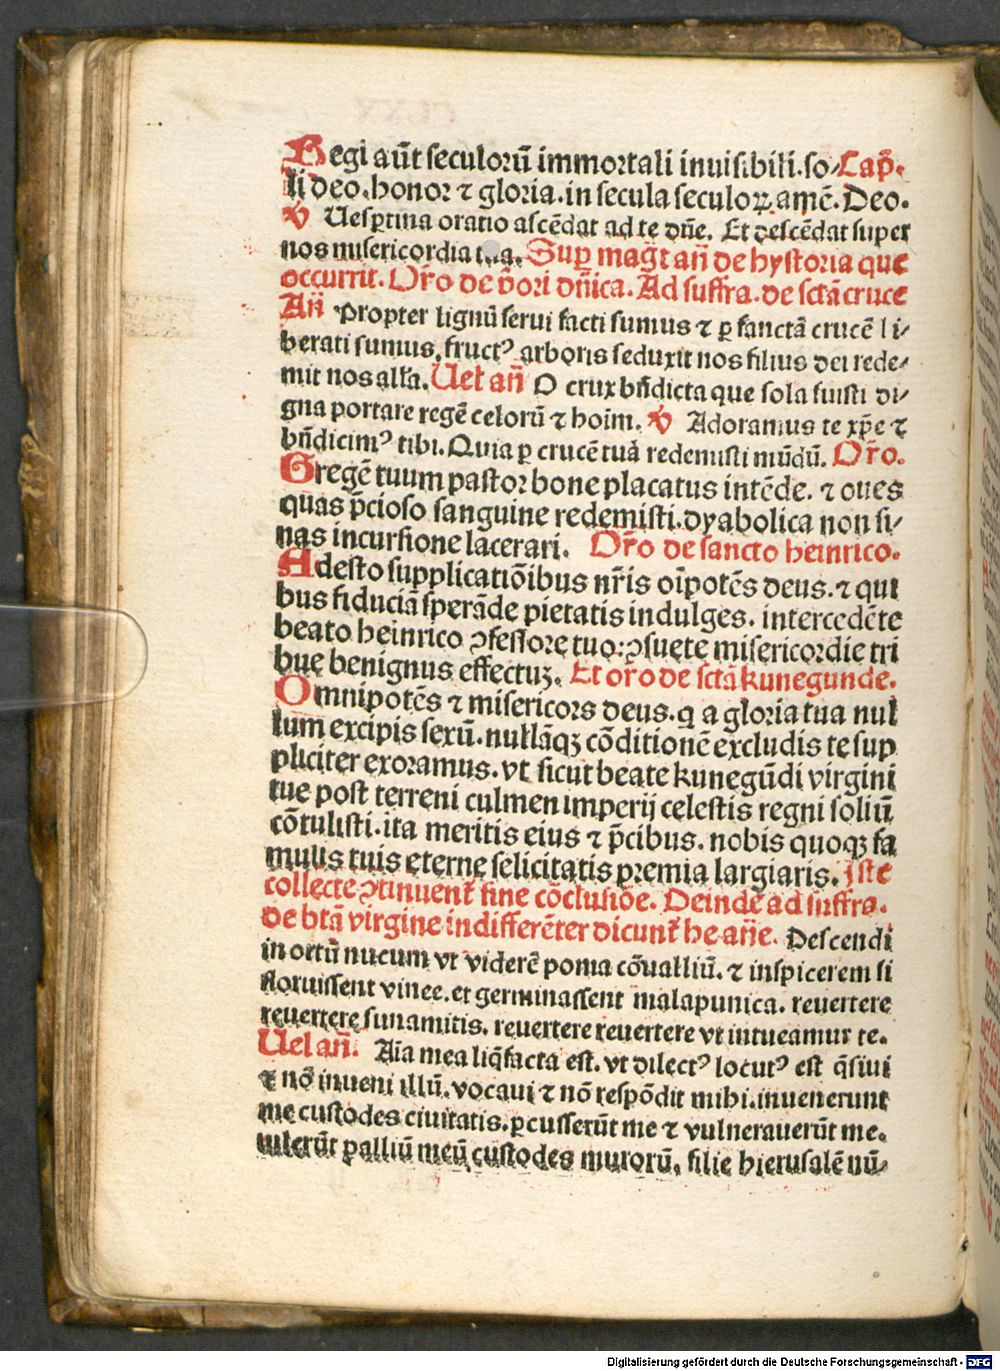 Regi aūt seculorū immortali inuisibili. so⸗ Capľ.
li deo. honor ⁊ gloria. in secula seculoꝝ. amē. Deo.
℣ Uespertina oratio ascēdat ad te dn̄e. Et descēdat super
nos misericordia tua. Sup̲ mag̃t an̄ de hystoria que
occurrit. Or̄o de p̄ori dn̄ica. Ad suffra. de sctā cruce
An̄ Propter lignū serui facti sumus ⁊ ꝑ sanctā crucē li⸗
berati sumus. fructꝰ arboris seduxit nos filius dei rede⸗
mit nos alľa. Uel an̄ O crux bn̄dicta que sola fuisti di⸗
gna portare regē celorū ⁊ hoīm. ℣ Adoramus te xp̄e ⁊
bn̄dicimꝰ tibi. Quia ꝑ crucē tuā redemisti mūdū. Or̄o.
Gregē tuum pastor bone placatus intēde. ⁊ oues
quas p̄cioso sanguine redemisti. dyabolica non si⸗
nas incursione lacerari. Or̄o de sancto heinrico.
Adesto supplicatiōibus nr̄is oīpotēs deus. ⁊ qui
bus fiduciā sperāde pietatis indulges. intercedēte
beato heinrico ꝯfessore tuo: ꝯsuete misericordie tri
bue benignus effectuꝫ. Et or̄o de sctā kunegunde.
Omnipotēs ⁊ misericors deus. q̄ a gloria tua nul
lum excipis sexū. nullāqꝫ cōditionē excludis te sup
pliciter exoramus. vt sicut beate kunegūdi virgini
tue post terreni culmen imperij celestis regni soliū
cōtulisti. ita meritis eius ⁊ p̄cibus. nobis quoqꝫ fa
mulis tuis eterne felicitatis premia largiaris. Iste
collecte ꝯtinuent̃ sine cōclusiōe. Deinde ad suffra.
de btā virgine indifferēter dicunt̃ he an̄e. Descendi
in ortū nucum vt viderē poma cōualliū. ⁊ inspicerem si
floruissent vinee. et germinassent malapunica. reuertere
reuertere sunamitis. reuertere reuertere vt intueamur te.
Uel an̄. Aīa mea liq̄facta est. vt dilectꝰ locutꝰ est q̄siui
⁊ nō inueni illū. vocaui ⁊ nō respōdit mihi. inuenerunt
me custodes ciuitatis. ꝑcusserūt me ⁊ vulnerauerūt me.
tulerūt palliū meū custodes murorū. filie hierusalē nū⸗
Digitalisierung gefördert durch die Deutsche Forschungsgemeinschaft - DFG